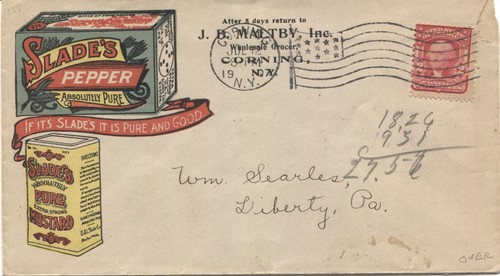 After 5 days return to
J. B. MALTBY, Inc.
Wholesale Grocer,
CORNING,
N.Y.
19
N.Y.
SLADE'S
PEPPER
ABSOLUTELY PURE
IF IT'S SLADES IT IS PURE AND GOOD.
SLADE'S
ABSOLUTELY
PURE
EXTRA STRONG
MUSTARD
DIRECTIONS
18.26
9 31
27.56
Wm. Searles,
Liberty, Pa.
OVER